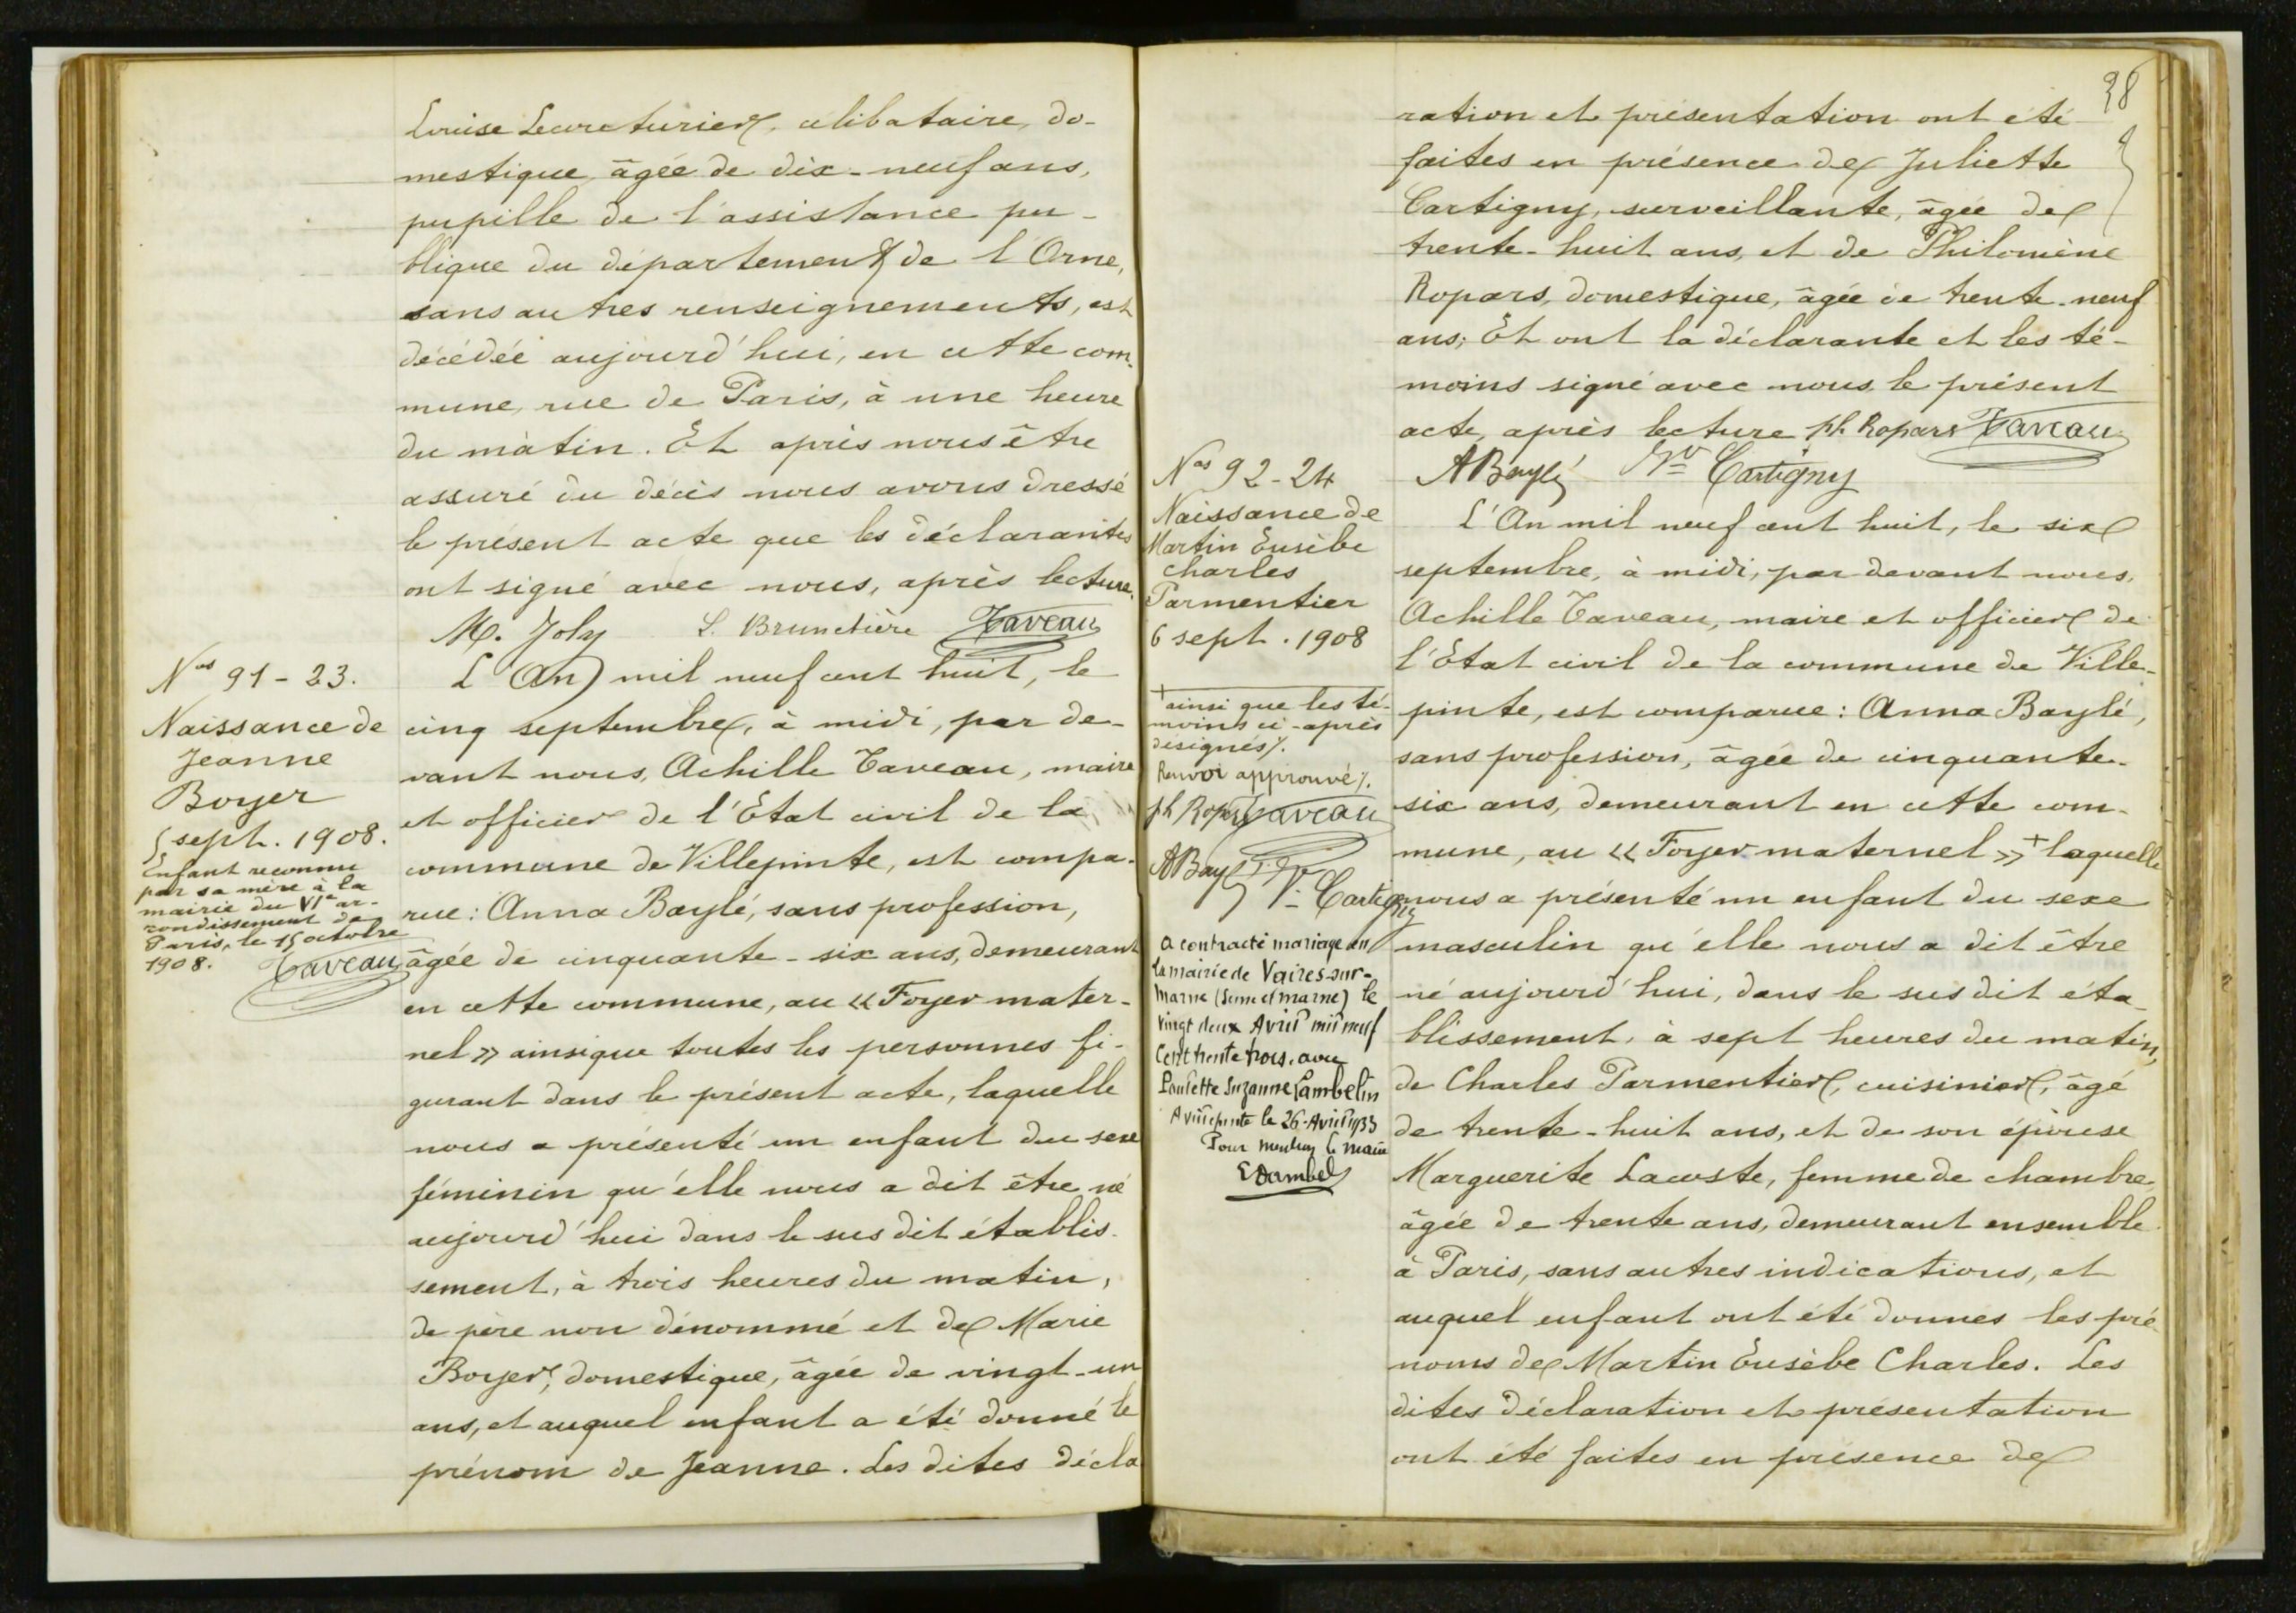 Louise Lecouturier, célibataire, do-
mestique, âgée de dix-neuf ans,
pupille de l'assistance pu-
blique du département de l'Orne,
sans autres renseignements, est
décédée aujourd'hui, en cette com-
mune, rue de Paris, à une heure
du matin. Et après nous être
assuré du décès nous avons dressé
le présent acte que les déclarantes
ont signé avec nous, après lecture.
M. Joly L. Brunetière Taveau
Nos 91-23.
Naissance de
Jeanne
Boyer
5 sept. 1908.
Enfant reconnu
par sa mère à la
mairie du VIe ar-
rondissement de
Paris, le 15 octobre
1908. Taveau
L'An mil neuf cent huit, le
cinq septembre, à midi, par de-
vant nous, Achille Taveau, maire
et officier de l'Etat civil de la
commune de Villepinte, est compa-
rue : Anna Baylé, sans profession,
âgée de cinquante-six ans, demeurant
en cette commune, au « Foyer mater-
nel » ainsi que toutes les personnes fi-
gurant dans le présent acte, laquelle
nous a présenté un enfant du sexe
féminin qu'elle nous a dit être né
aujourd'hui dans le susdit établis-
sement, à trois heures du matin,
de père non dénommé et de Marie
Boyer, domestique, âgée de vingt-un
ans, et auquel enfant a été donné le
prénom de Jeanne. Les dites décla
38
ration et présentation ont été
faites en présence de Juliette
Cartigny, surveillante, âgée de
trente-huit ans, et de Philomène
Ropars, domestique, âgée de trente-neuf
ans; Et ont la déclarante et les té-
moins signé avec nous le présent
acte, après lecture ph. Ropars Taveau
ABaylé Vve Cartigny
Nos 92-24
Naissance de
Martin Eusèbe
Charles
Parmentier
6 sept. 1908
+ ainsi que les té-
moins ci-après
désignés /.
Renvoi approuvé /.
ph Ropars Taveau
ABaylé
Vve Cartigny
a contracté mariage en
la mairie de Vaires-sur-
Marne (Seine et marne) le
vingt deux Avril mil neuf
Cent trente trois, avec
Paulette Suzanne Lambelin
A Villepinte le 26 Avril 1933
Pour mention le maire
L'An mil neuf cent huit, le six
septembre, à midi, par devant nous,
Achille Taveau, maire et officier de
l'Etat civil de la commune de Ville-
pinte, est comparue : Anna Baylé,
sans profession, âgée de cinquante-
six ans, demeurant en cette com-
mune, au « Foyer maternel » + laquelle
nous a présenté un enfant du sexe
masculin qu'elle nous a dit être
né aujourd'hui, dans le susdit éta-
blissement, à sept heures du matin,
de Charles Parmentier, cuisinier, âgé
de trente-huit ans, et de son épouse
Marguerite Lacoste, femme de chambre,
âgée de trente ans, demeurant ensemble
à Paris, sans autres indications, et
auquel enfant ont été donnés les pré-
noms de Martin Eusèbe Charles. Les
dites déclaration et présentation
ont été faites en présence de